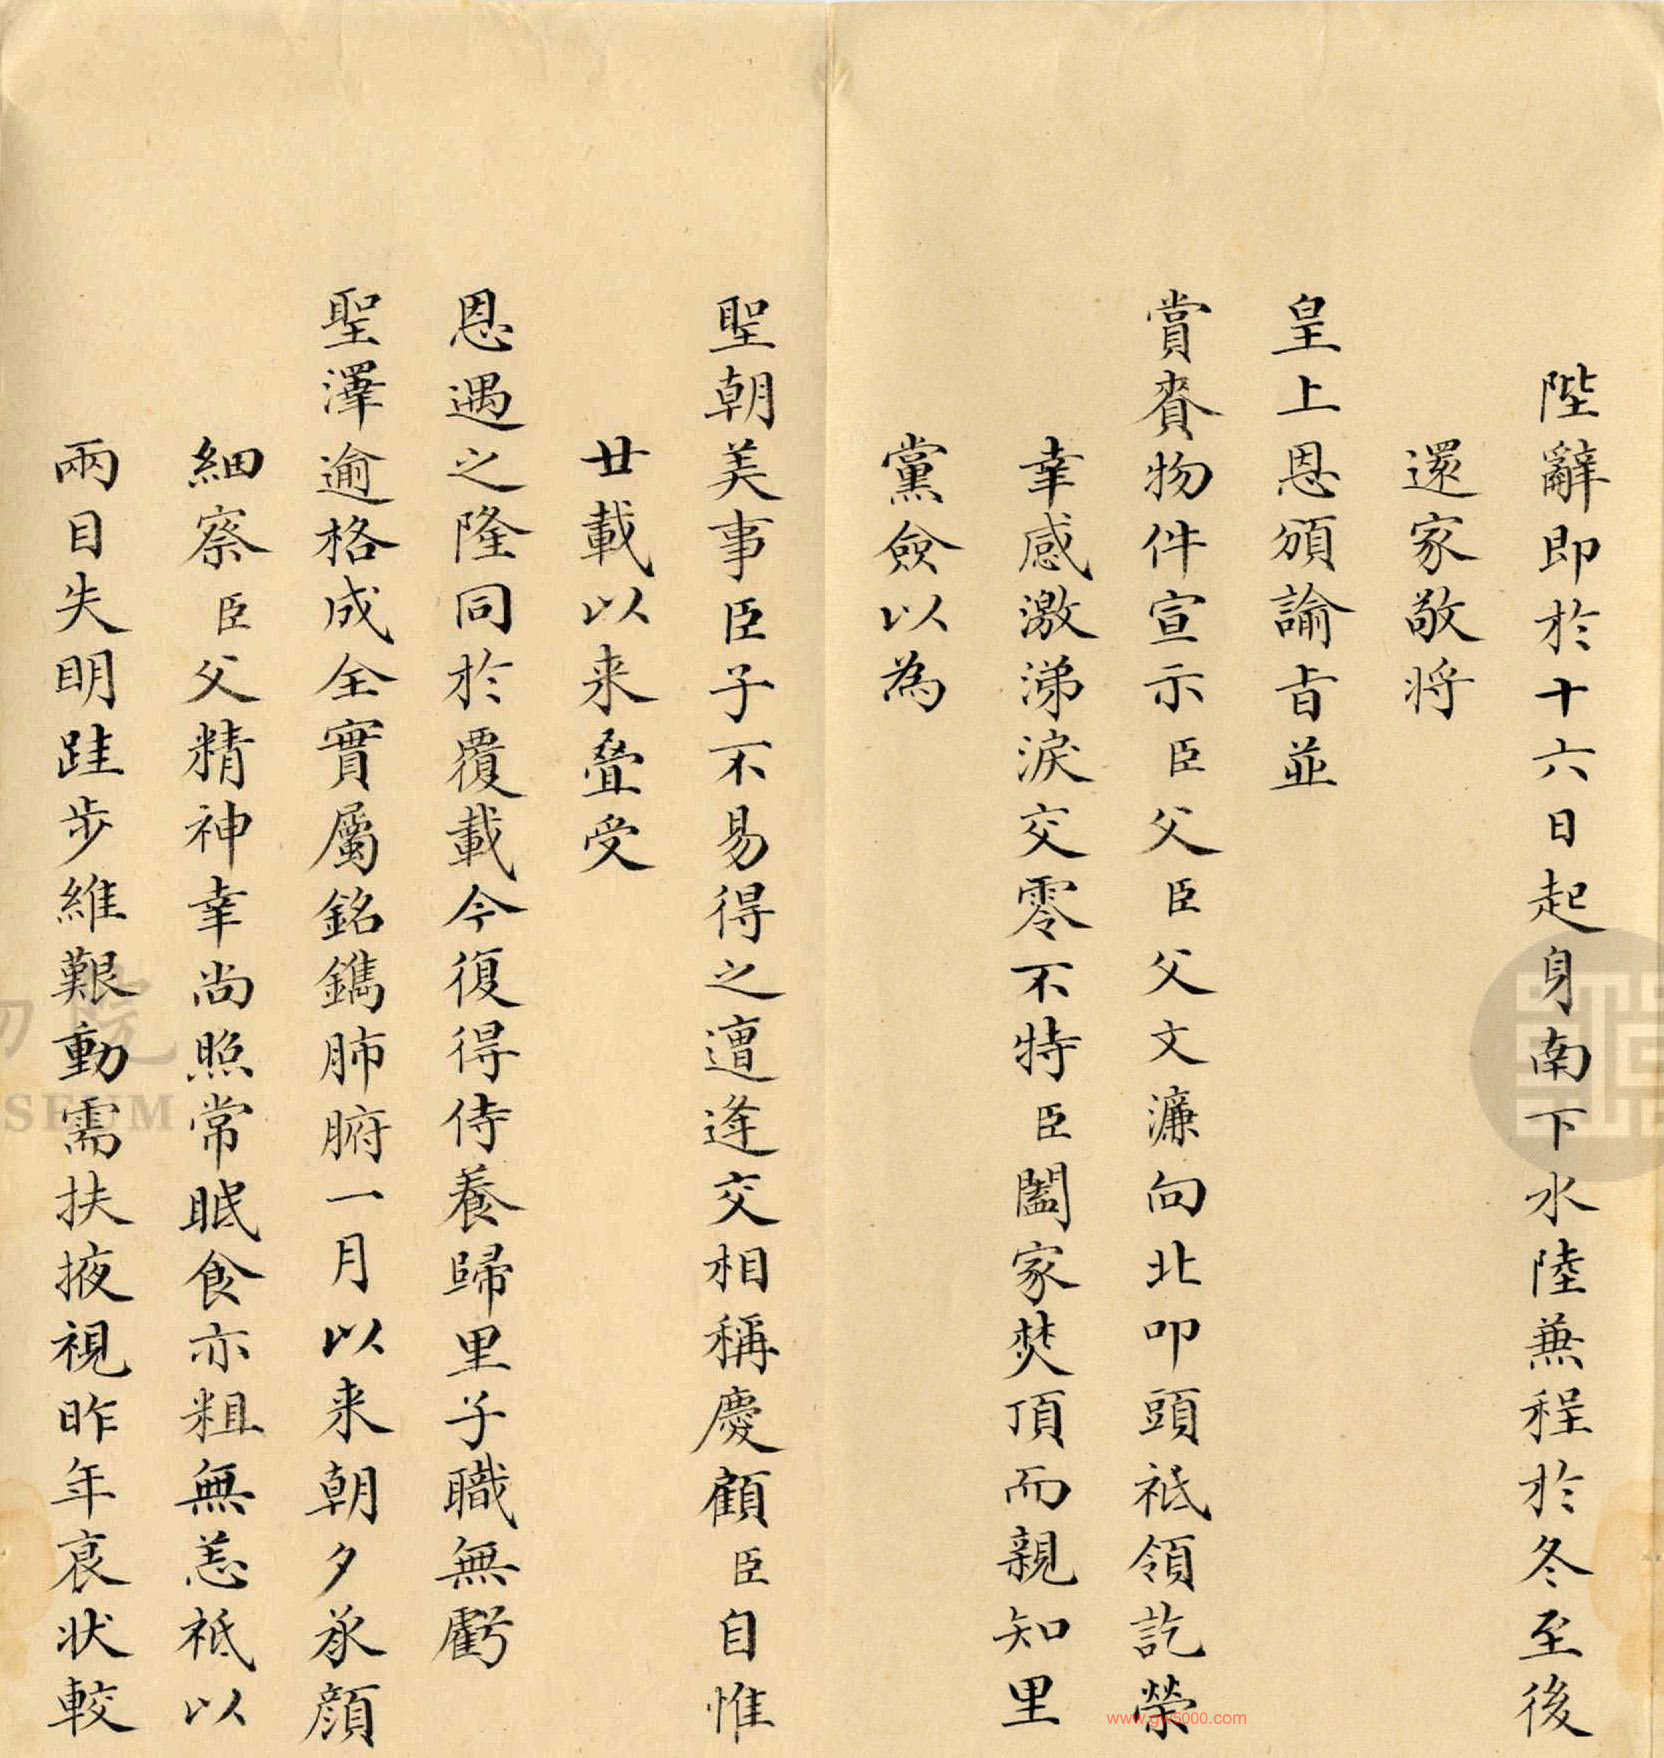 陛辭即於十六日起身南下水陸兼程於冬至後
還家敬將
皇上恩頒諭旨並
賞賚物件宣示臣父臣父文濂向北叩頭祗領訖榮
幸感激涕淚交零不特臣闔家焚頂而親知里
黨僉以為
聖朝美事臣子不易得之遭逢交相稱慶顧臣自惟
廿載以来疊受
恩遇之隆同於覆載今復得侍養歸里子職無虧
聖澤逾格成全實屬銘鐫肺腑一月以来朝夕承顏
細察臣父精神幸尚照常眠食亦粗無恙祗以
兩目失明跬步維艱動需扶掖視昨年衰状較
院
SEUM
www.gw5000.com